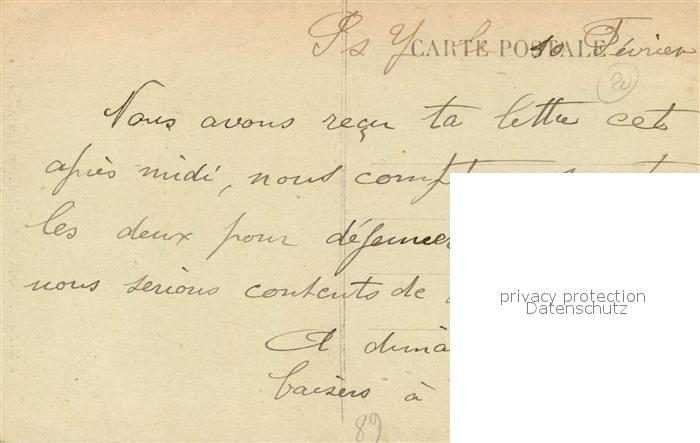 10 Février
CARTE POSTALE
20
Nous avons reçu ta lettre cet
après midi, nous
les deux pour déjeuner
nous serions contents de
A
baisers à
89
privacy protection
Datenschutz